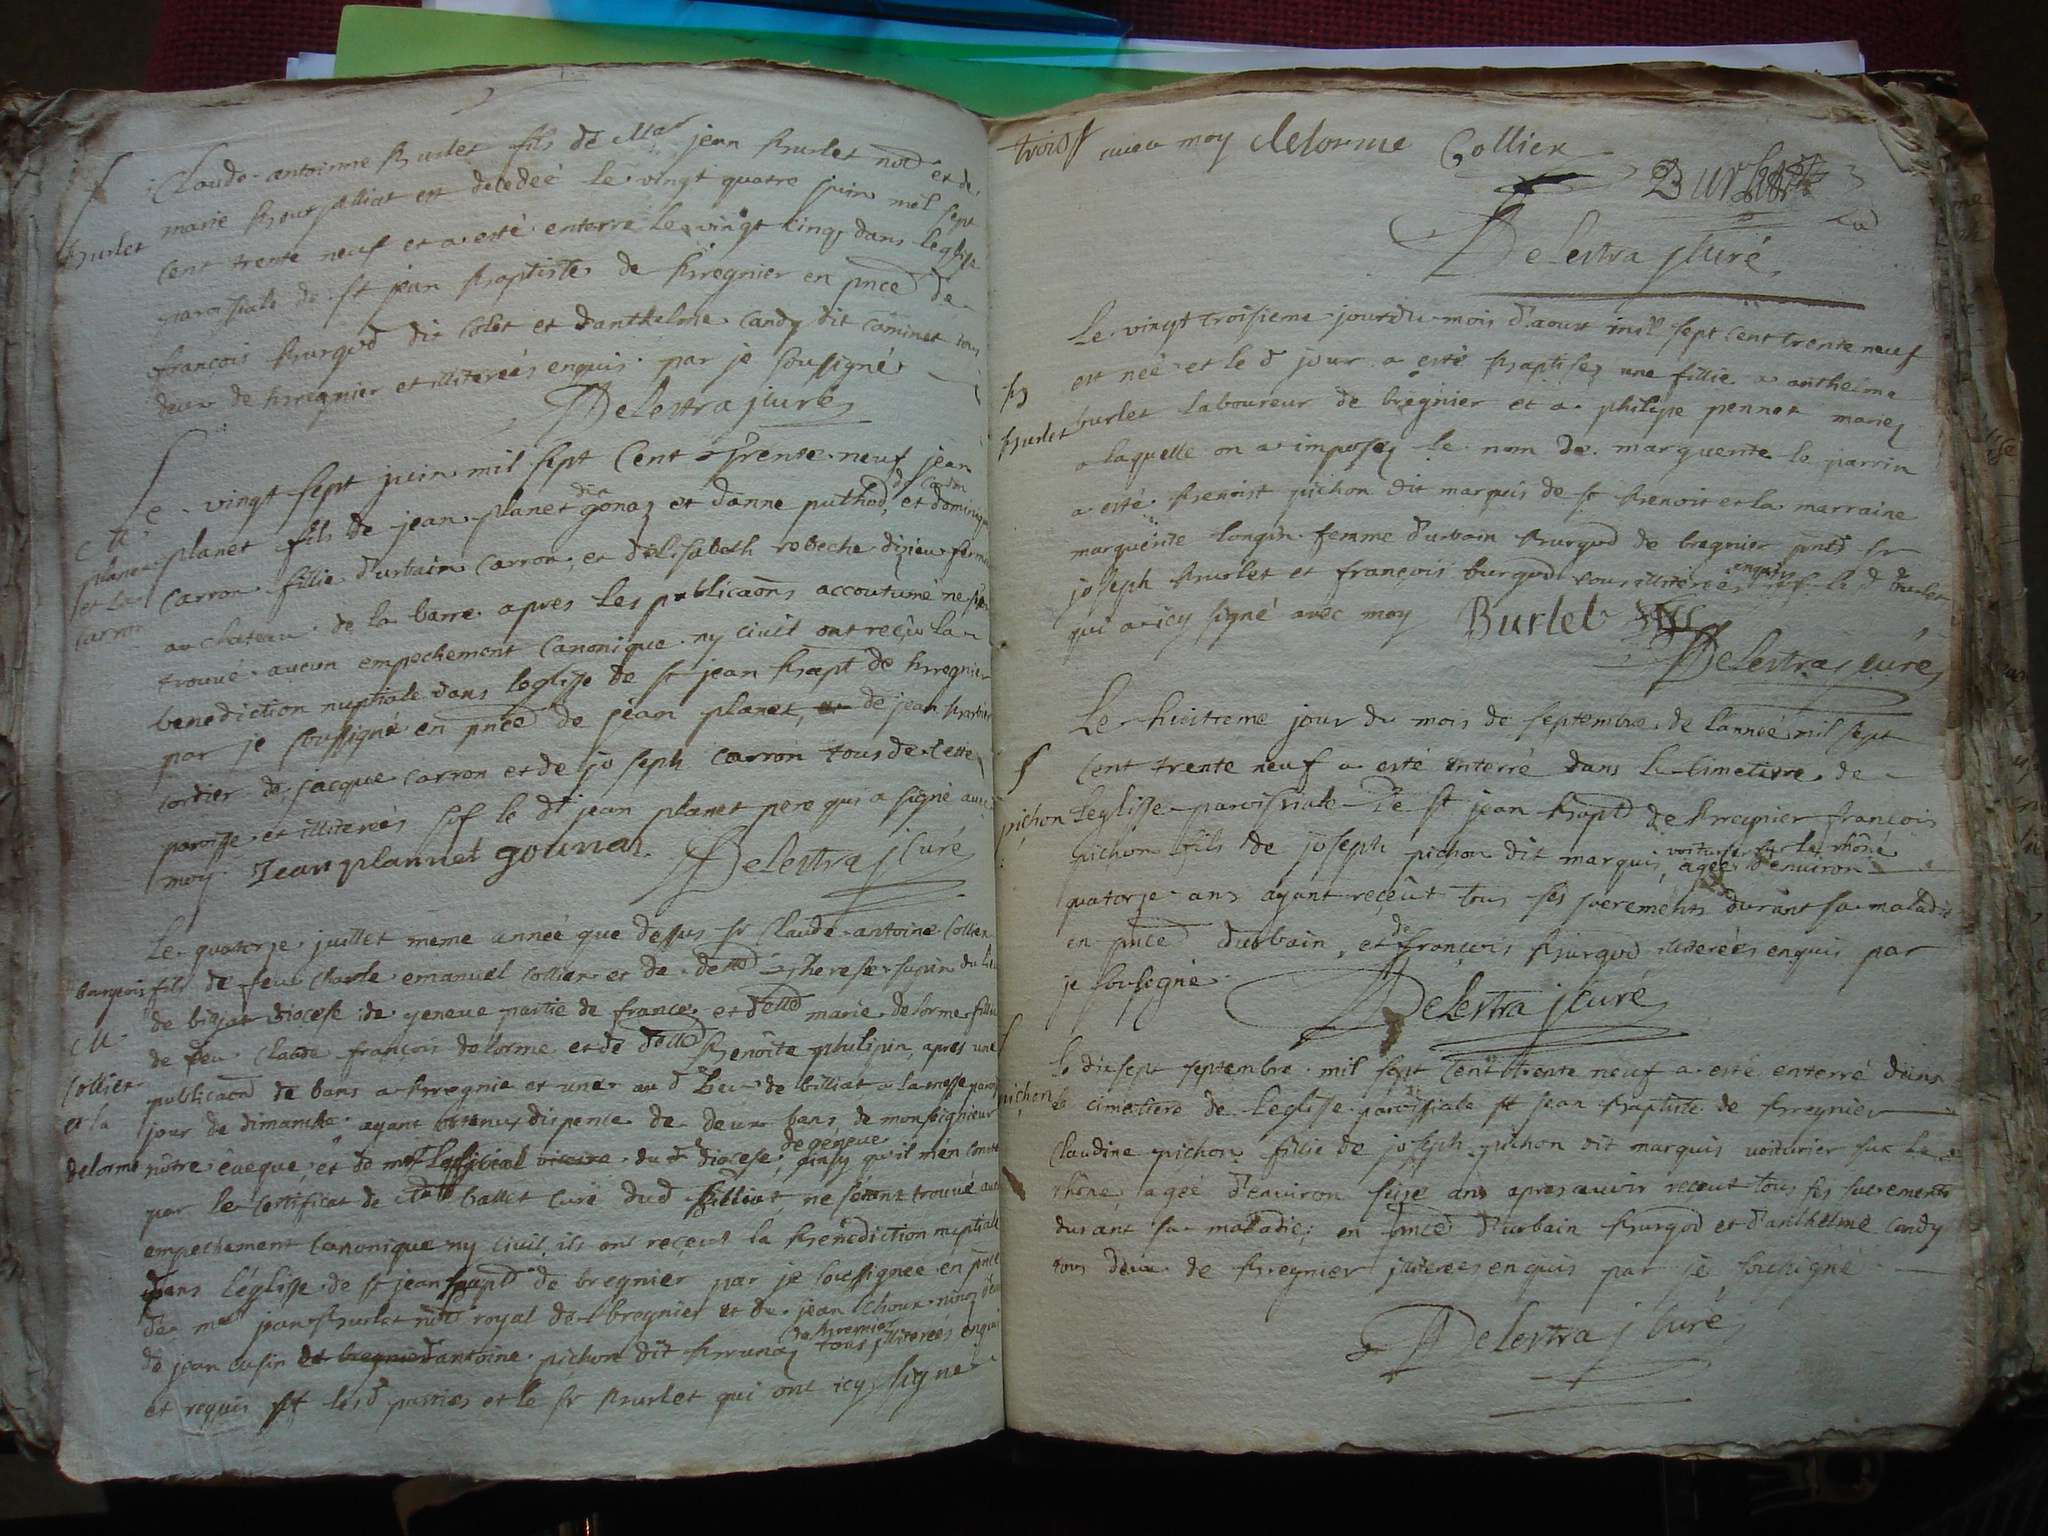 Claude antoinne Burlet fils de Mtre jean Burlet nore et de
marie Bourpalliat est decedéé le vingt quatre juin mil sept
Burlet
cent trente neuf et a esté enterré le vingt cinq dans leglise
paroissiale de st jean Baptiste de Bregnier en pnce de
françois Burgod dit Colet et danthelme Candy dit caminet tous
deux de bregnier et illiterées enquis par je soussigné
Delestra j Curé
Le vingt sept juin mil sept Cent trente neuf jean
planet fils de jean planet dit gonaz et danne puthod, et dominique
planet
et La
Carron
Carron fillie d'urbain Carron et d'elisabeth robeche dizieu
au chateau de la barre apres les publicaons accoutumé ne
trouvé aucun empechement Canonique ny civil ont reçu la
benediction nuptiale dans leglisse de st jean Bapt de bregnier
par je soussigné en pnce de jean planet, de jean
cordier de jacque Carron et de joseph Carron tous de cette
paroisse et illiterées sof le dt jean planet pere qui a signé avec
moy Jean plannet gounaz Delestra j Curé
Le quatorze juillet meme année que dessus sr Claude antoine Collier
bourgois fils de feu Charle emanuel Collier et de delle Therese supin du lieu
de billiat diocese de geneve partie de france, et delle marie delorme fillie
de feu Claude françois delorme et de delle Benoite philipin, apres une
Collier
et la
delorme
publicaon de bans a Bregnie et une au d lieu de billiat a la messe
jour de dimanche ayant obtenus dispence de deux bans de monseignieur
nôtre évéque, et de mr Lofficial du d diocese, de geneve ainsy qu'il m'en conste
par le Certificat de ballet Curé dud Billiat, ne s'étant trouvé
empechement Canonique ny Civil, ils ont reçeut la Benédiction nuptiale
dans l'églisse de st jean bapt de bregnier par je soussignée en pnce
de me jean Burlet nore royal de bregnier et de jean
de jean cusin d'antoine pichon dit Brunaz de Bregnier tous illiterées enquis
et requis sof lesd parties et le sr Burlet qui ont icy signé
trois avec moy delorme Collier
Burlet
Delestra j Curé
Le vingt troisieme jour du mois d'aoust mil sept cent trente neuf
est néé et le d jour a esté Baptisez une fillie a anthelme
B
Burlet
burlet laboureur de bregnier et a philipe pennet mariez
a laquelle on a imposez le nom de marguerite le parrin
a esté Benoist pichon dit marquis de st Benoit et la marraine
marguerite longin femme d'urbain Burgod de bregnier pnts sr
joseph Burlet et françois burgod tous illiterées enquis sof le d burlet
qui a icy signé avec moy Burlet
Delestra j curé
Le huitieme jour du mois de septembre de l'année mil sept
cent trente neuf a esté enterré dans le Cimetiere de
pichon
l'eglisse paroissiale de st jean Bapt de Bregnier françois
pichon fils de joseph pichon dit marquis, voiturier sur le rhône agée d'environ
quatorze ans ayant reçeut tous ses sacrements durant sa maladie
en pnce d'urbain, et de françois Burgod illiterées enquis par
je soussigné
Delestra j Curé
Le dixsept septembre mil sept Cent trente neuf a esté enterré dans
pichon
le cimetiere de Leglisse paroissiale st jean Baptiste de Bregnier
Claudine pichon fillie de joseph pichon dit marquis voiturier sur le
rhône agée d'environ seize ans apres avoir receut tous ses sacrements
durant sa maladie, en pnce d'urbain Burgod et d'anthelme Candy
tous deux de Bregnier illiterées enquis par je soussigné
Delestra j Curé